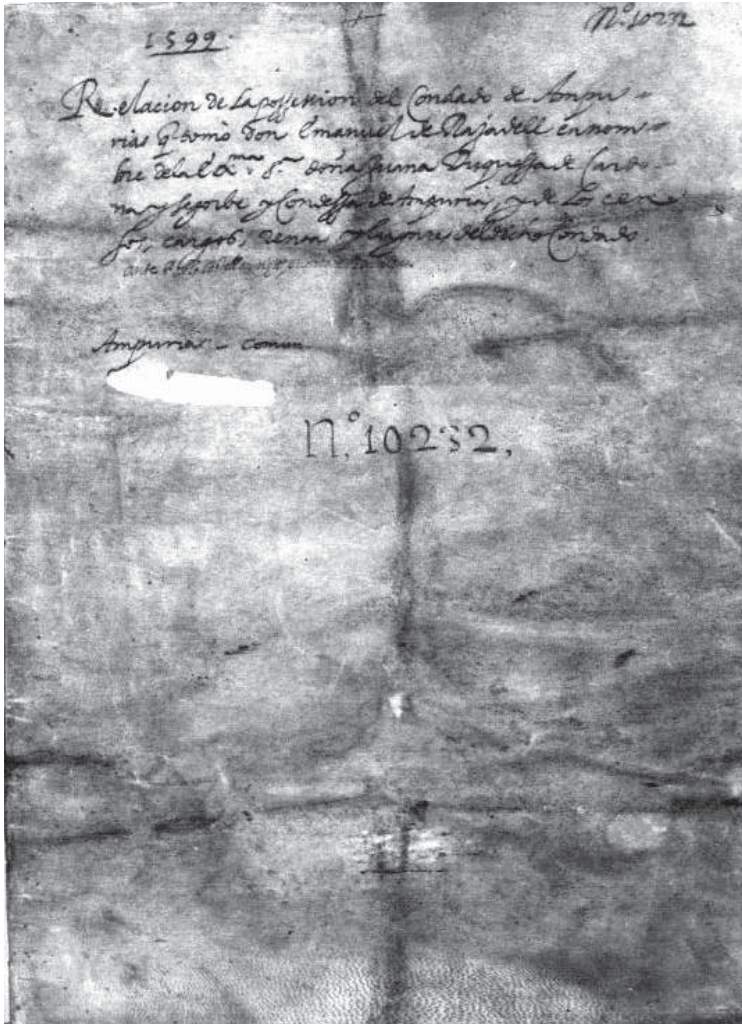 Nº 10232
1599.
Relacion de la possession del Condado de Ampu-
rias q tomò Don Emanuel de Rajadell en nom-
bre de la Exma Sra doña Juana Duquessa de Cardo-
na y Segorbe y Condessa de Ampurias, y de los cen-
sos, cargos, rentas del dicho Condado.
Ampurias - comun
N.º 10232.